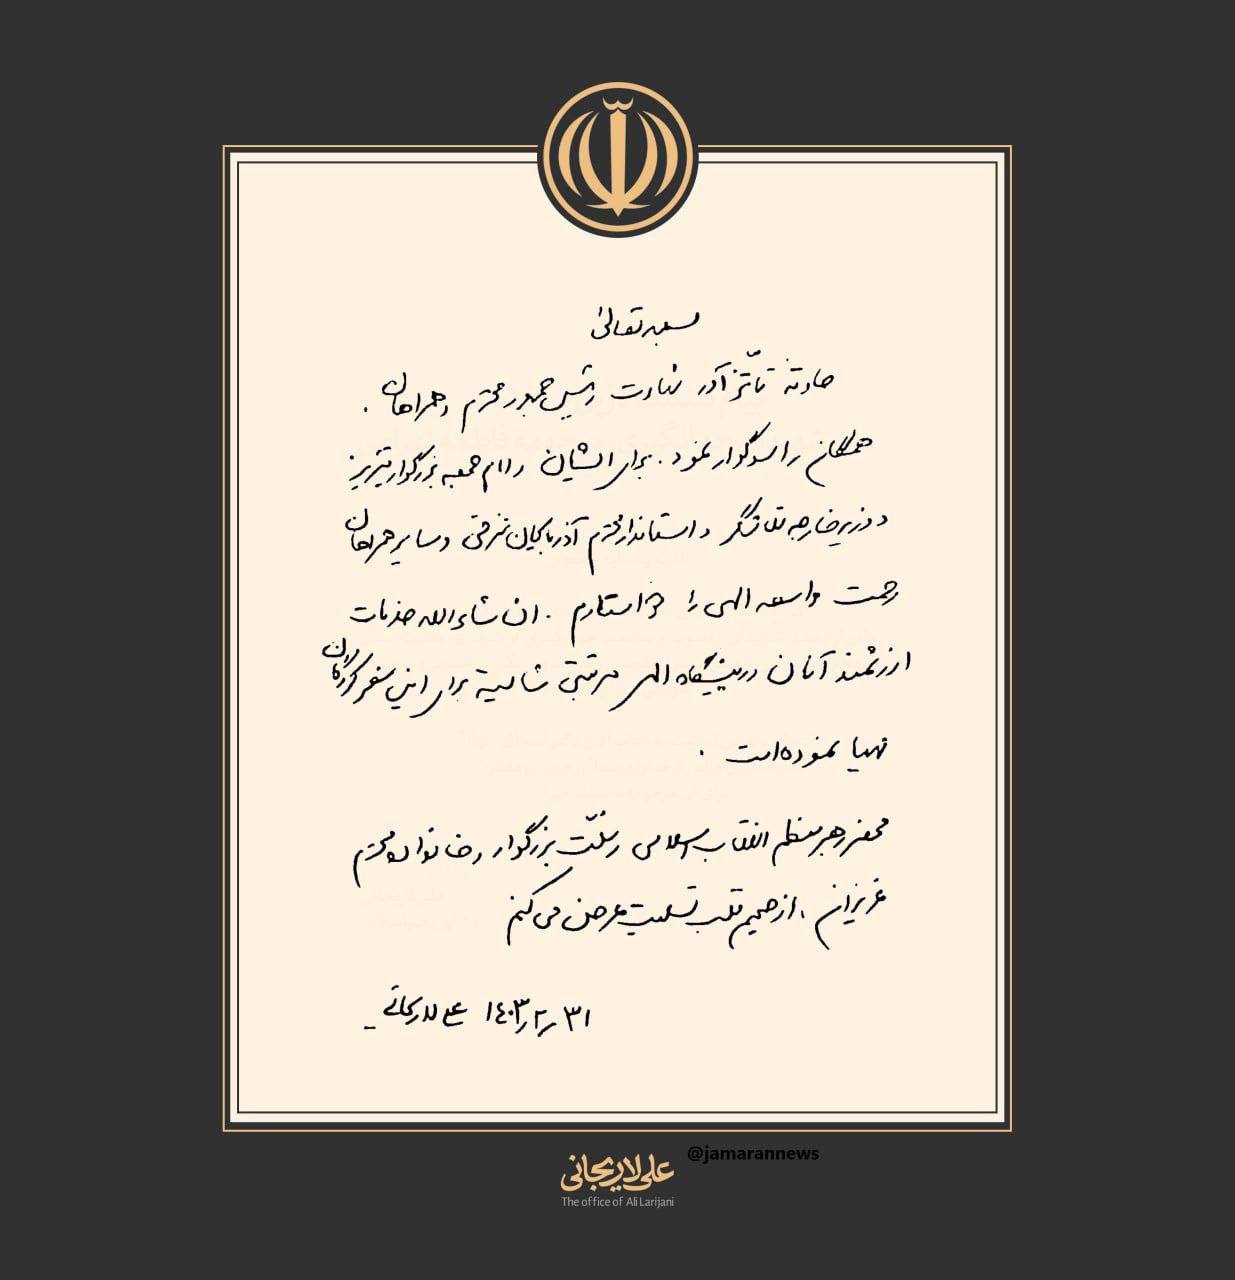 بسمه تعالی
حادثه تأثّرآور شهادت رئیس جمهور محترم و همراهان،
همگان را سوگوار نمود. برای ایشان و امام جمعه بزرگوار تبریز
و وزیر خارجه تلاشگر و استاندار محترم آذربایجان شرقی و سایر همراهان
رحمت واسعه الهی را خواستارم. ان شاءالله خدمات
ارزشمند آنان در پیشگاه الهی مرتبتی شایسته برای این سفرکردگان
مهیا نموده است.
محضر رهبر معظم انقلاب اسلامی و ملّت بزرگوار و خانواده محترم
عزیزان، از صمیم قلب تسلیت عرض می‌کنم
۳۱/۲/۱۴۰۳ علی لاریجانی
@jamarannews
علی لاریجانی
The office of Ali Larijani